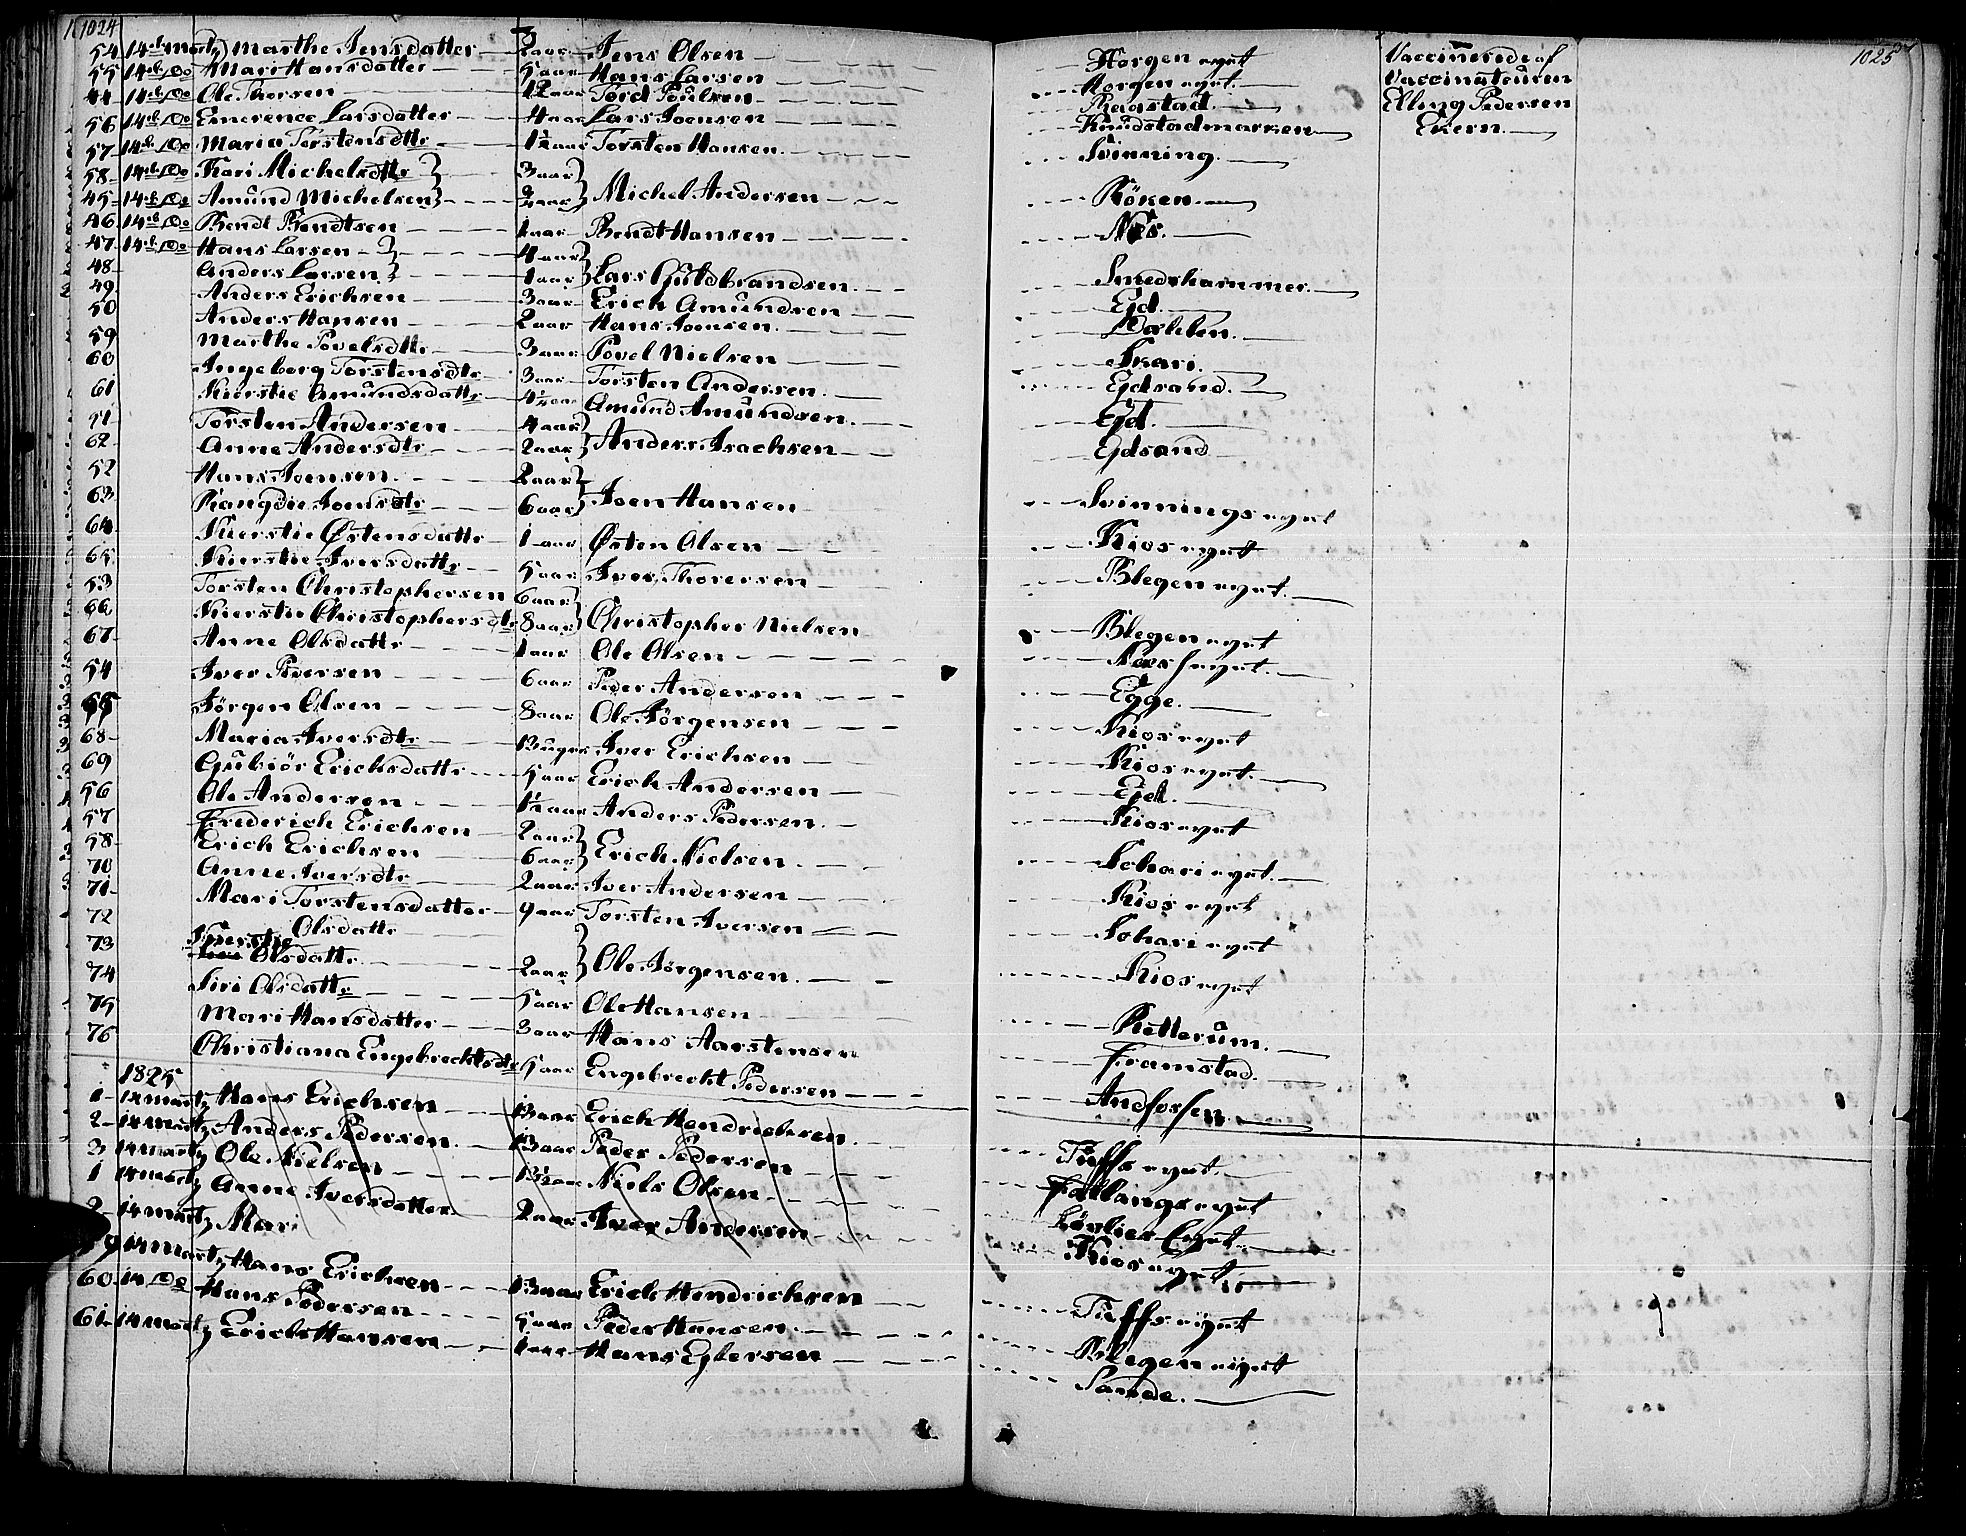 1024
1025
54 14de martz Marthe Jensdatter 2 aar Jens Olsen Horgen eyet Vaccinerede af
55 14de Do Mari Hansdatter 5 aar Hans Larsen Horgen eyet Vaccinateuren
44 14de Do Ole Thorsen 12 aar Tord Poulsen Raastad Elling Pedersen
56 14de Do Emerence Larsdatter 4 aar Lars Joensen Knudstadmarken Ekern
57 14de Do Maria Torstensdttr 1½ aar Torsten Hansen Svinning
58 14de Do Kari Michelsdttr 3 aar
45 14de Do Amund Michelsen Michel Andersen Röken
46 14de Do Bendt Bendtsen 1 aar Bendt Hansen Næs
47 14de Do Hans Larsen 4 aar
48 Anders Larsen 1 aar Lars Guldbrandsen Smedshammer
49 Anders Erichsen 3 aar Erich Amundsen Eid
50 Anders Hansen 2 aar Hans Joensen Dahlen
59 Marthe Povelsdttr 3 aar Povel Nielsen Skari
60 Ingeborg Torstensdtr 3 aar Torsten Andersen Eidsand
61 Kierstie Amundsdattr 4½ aar Amund Amundsen Eid
51 Torsten Andersen 4 aar
62 Anne Andersdtr 2 aar Anders Isachsen Eidsand
52 Hans Joensen 2 aar
63 Rangdie Joensdtr 6 aar Joen Hansen Svinnings eyet
64 Kierstie Østensdattr 1 aar Østen Olsen Kios eyet
65 Kierstie Iversdattr 5 aar Iver Thorersen Blegen eyet
53 Torsten Christophersen 6 aar
66 Kierstie Christophersdtr 8 aar Christopher Nielsen Blegen eyet
67 Anne Olsdattr 1 aar Ole Olsen Næss eyet
54 Iver Pedersen 6 aar Peder Andersen Egge
55 Jörgen Olsen 8 aar Ole Jörgensen Kios eyet
68 Maria Iversdtr 13 uger Iver Erichsen Kios eyet
69 Gubiör Ericksdattr 5 aar Erich Andersen Eid
56 Ole Andersen 1½ aar Anders Pedersen Kios eyet
57 Frederich Erichsen 2 aar
58 Erich Erichsen 6 aar Erich Nielsen Sohari eyet
70 Anne Iversdtr 2 aar Iver Andersen Kios eyet
71 Mari Torstensdatter 9 aar Torsten Iversen Sohari eyet
72 Olsdattr
73 Kierstie Olsdattr 2 aar Ole Jörgensen Kios eyet
74 Siri Olsdattr 5 aar Ole Hansen Retterum
75 Mari Hansdatter 3 aar Hans Aarstensen Framstad
76 Christiana Engebrechtsdtr 5 aar Engebrecht Pedersen Andfossen
1825
1 14 martz Hans Erichsen 13 aar Erich Hendrichsen Tuffs eyet
2 14 martz Anders Pedersen 13 aar Peder Pedersen Fallangs eyet
3 14 martz Ole Nielsen Niels Olsen Lövlier Eyet
1 14 martz Anne Iversdatter 2 aar Iver Andersen Kios eyet
2 14 martz Mari
59 14 Martz Hans Erichsen 13 aar Erich Hendrichsen Tuffs eiyet
60 14 Do Hans Pedersen 5 aar Peder Hansen Blegen eiyet
61 14 Martz Erich Hansen 1 aar Hans Eglersen Sande